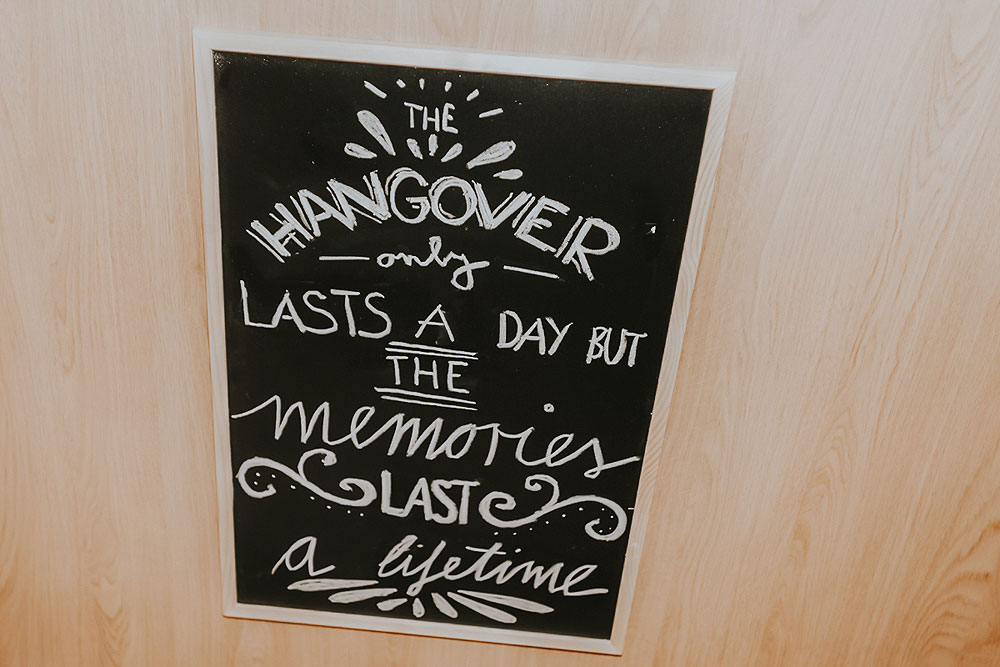 THE
HANGOVER
only
LASTS A DAY BUT
THE
memories
LAST
a lifetime